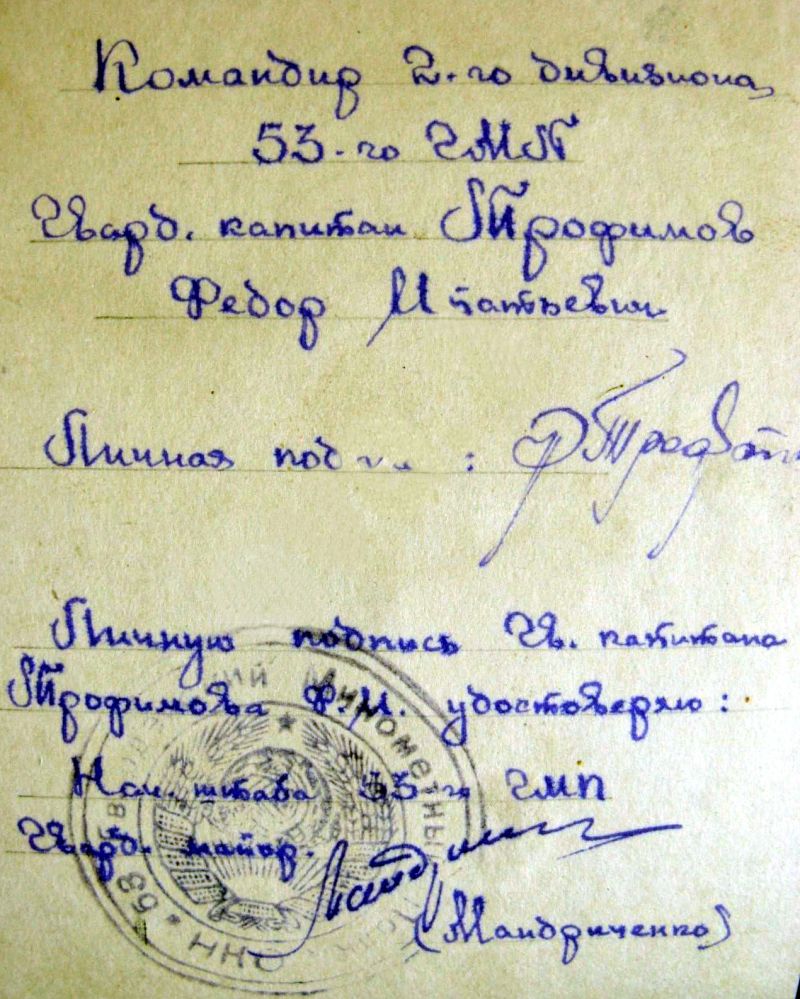 Командир 2-го дивизиона
53-го ГМП
Гвард. капитан Трофимов
Федор Игнатьевич
Личная подпись :
Личную подпись Гв. капитана
Трофимова Ф.И. удостоверяю :
Нач. штаба 53-го ГМП
Гвард. майор.
(Мандриченко)